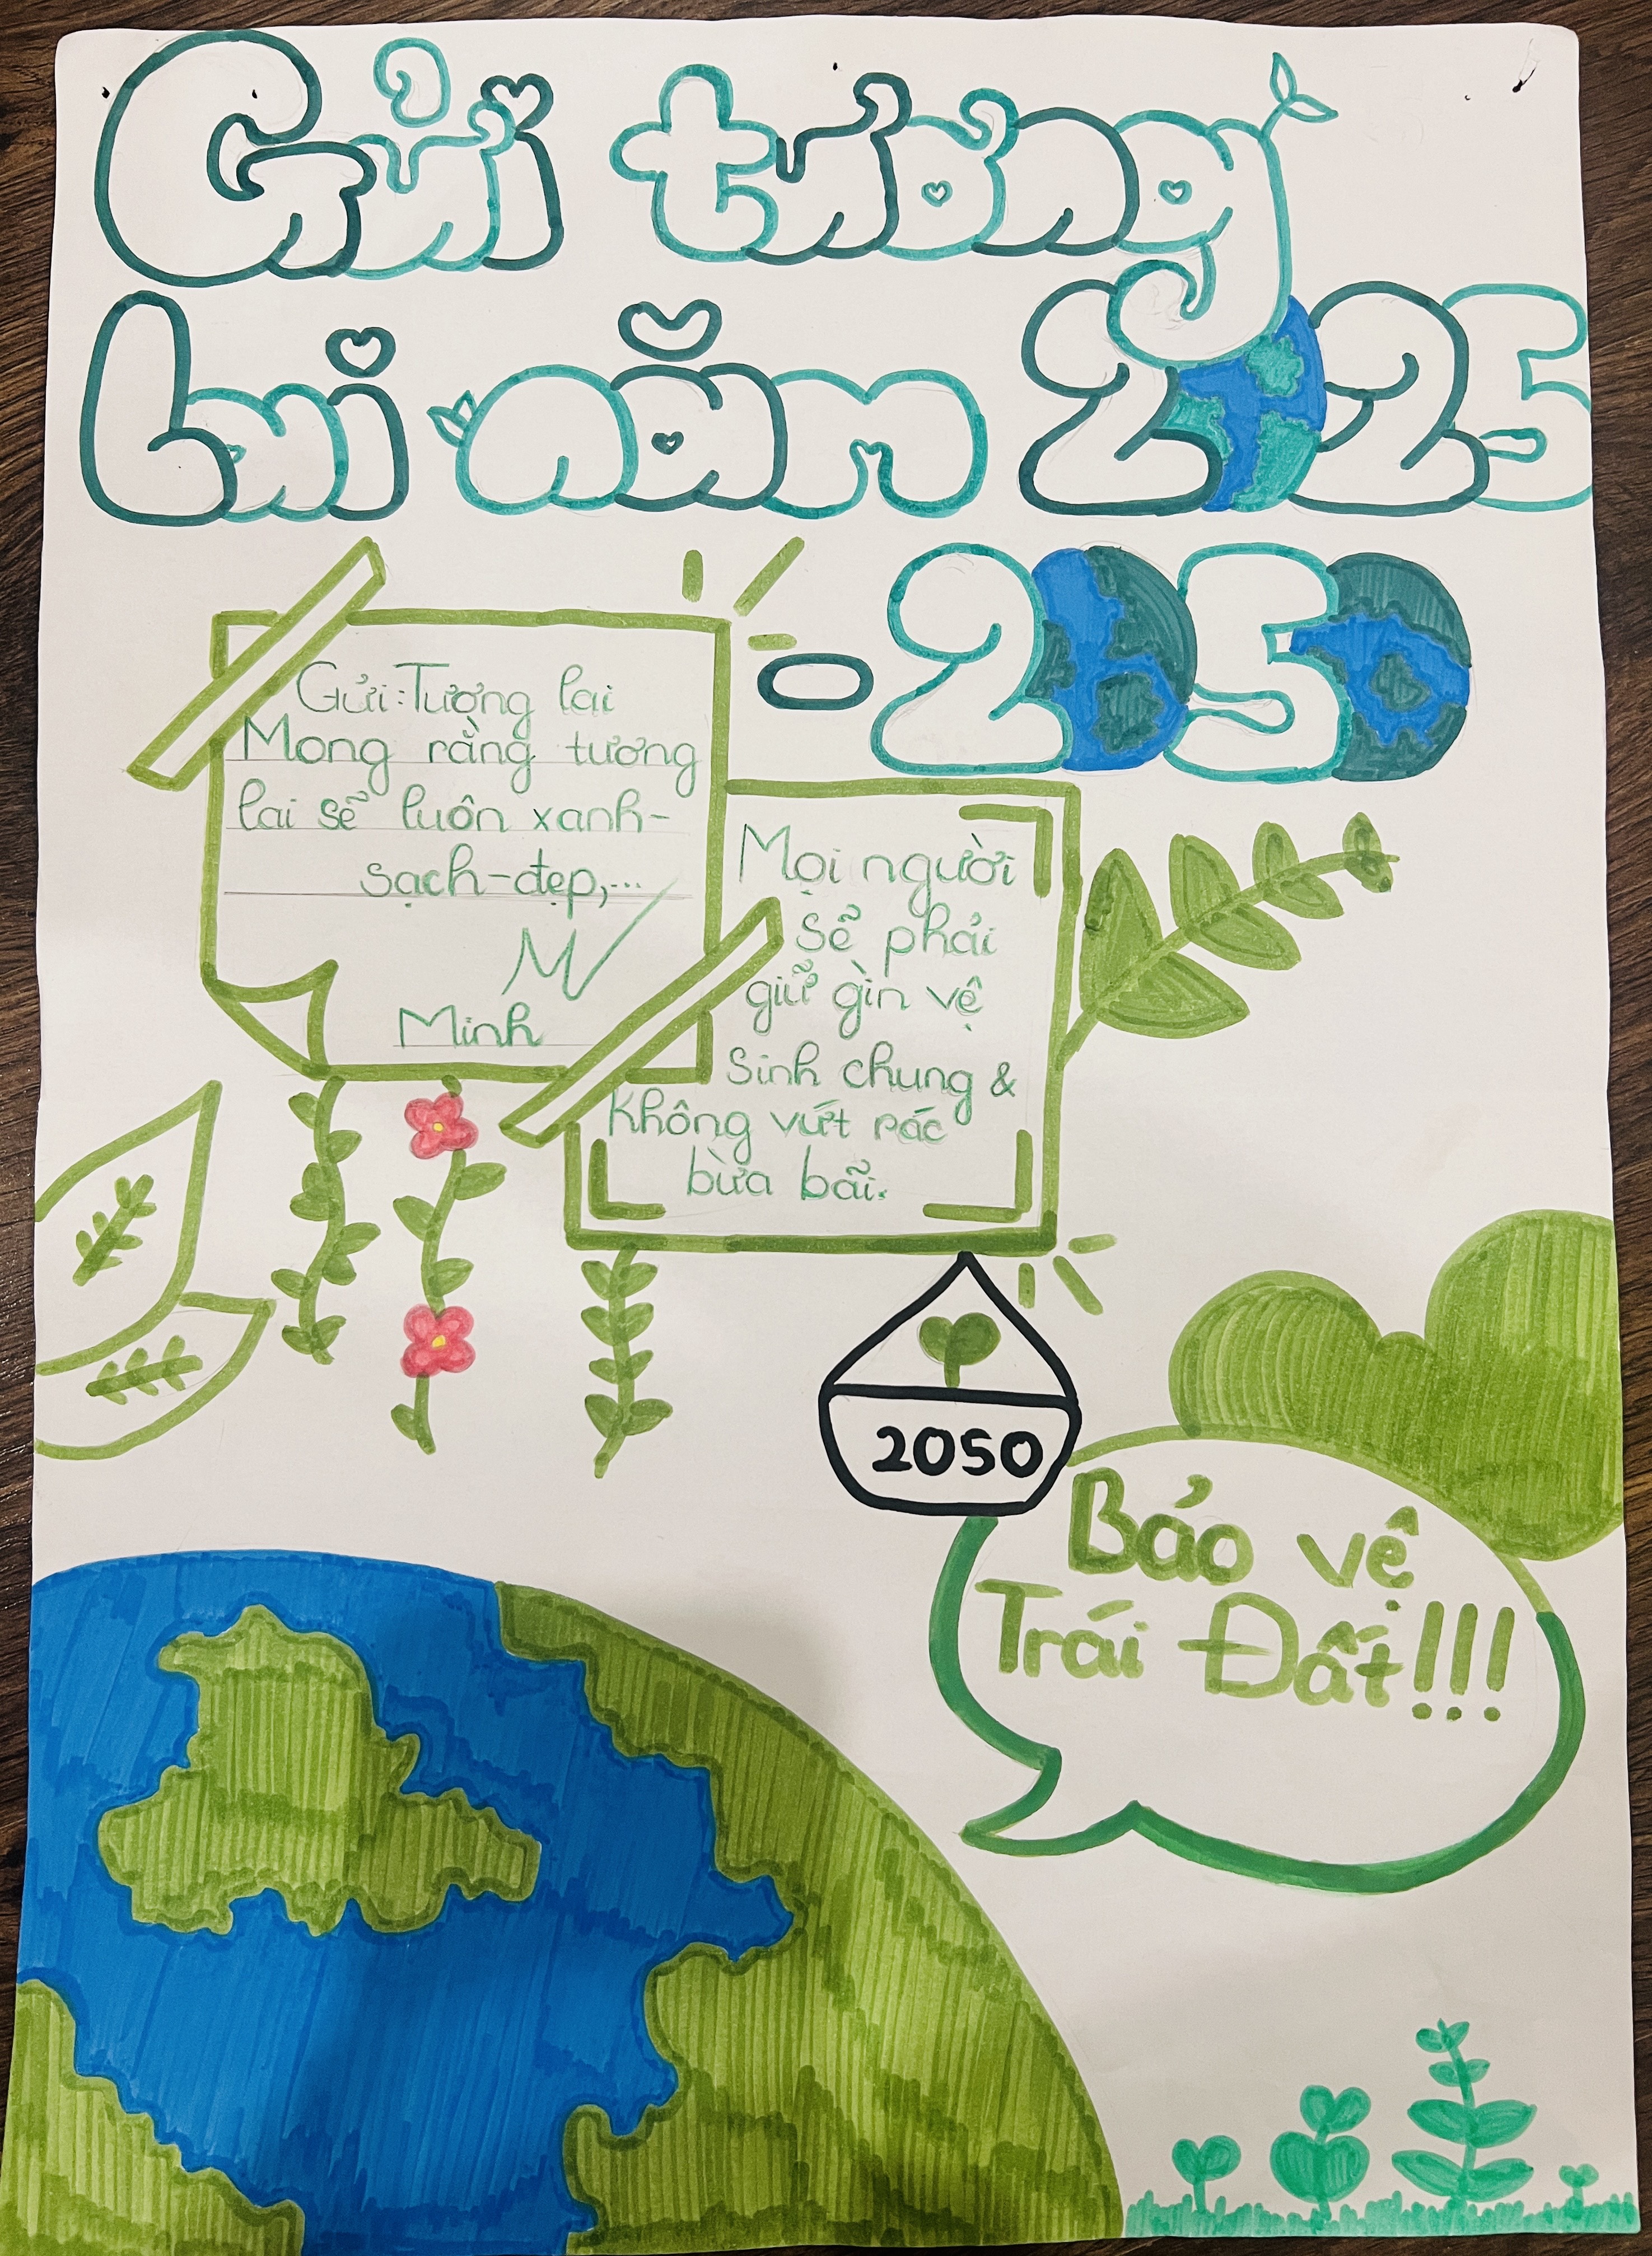 Gửi tương
lai năm 2025
- 2050
Gửi: Tương lai
Mong rằng tương
lai sẽ luôn xanh-
sạch-đẹp,...
M
Minh
Mọi người
sẽ phải
giữ gìn vệ
sinh chung &
không vứt rác
bừa bãi.
2050
Bảo vệ
Trái Đất!!!